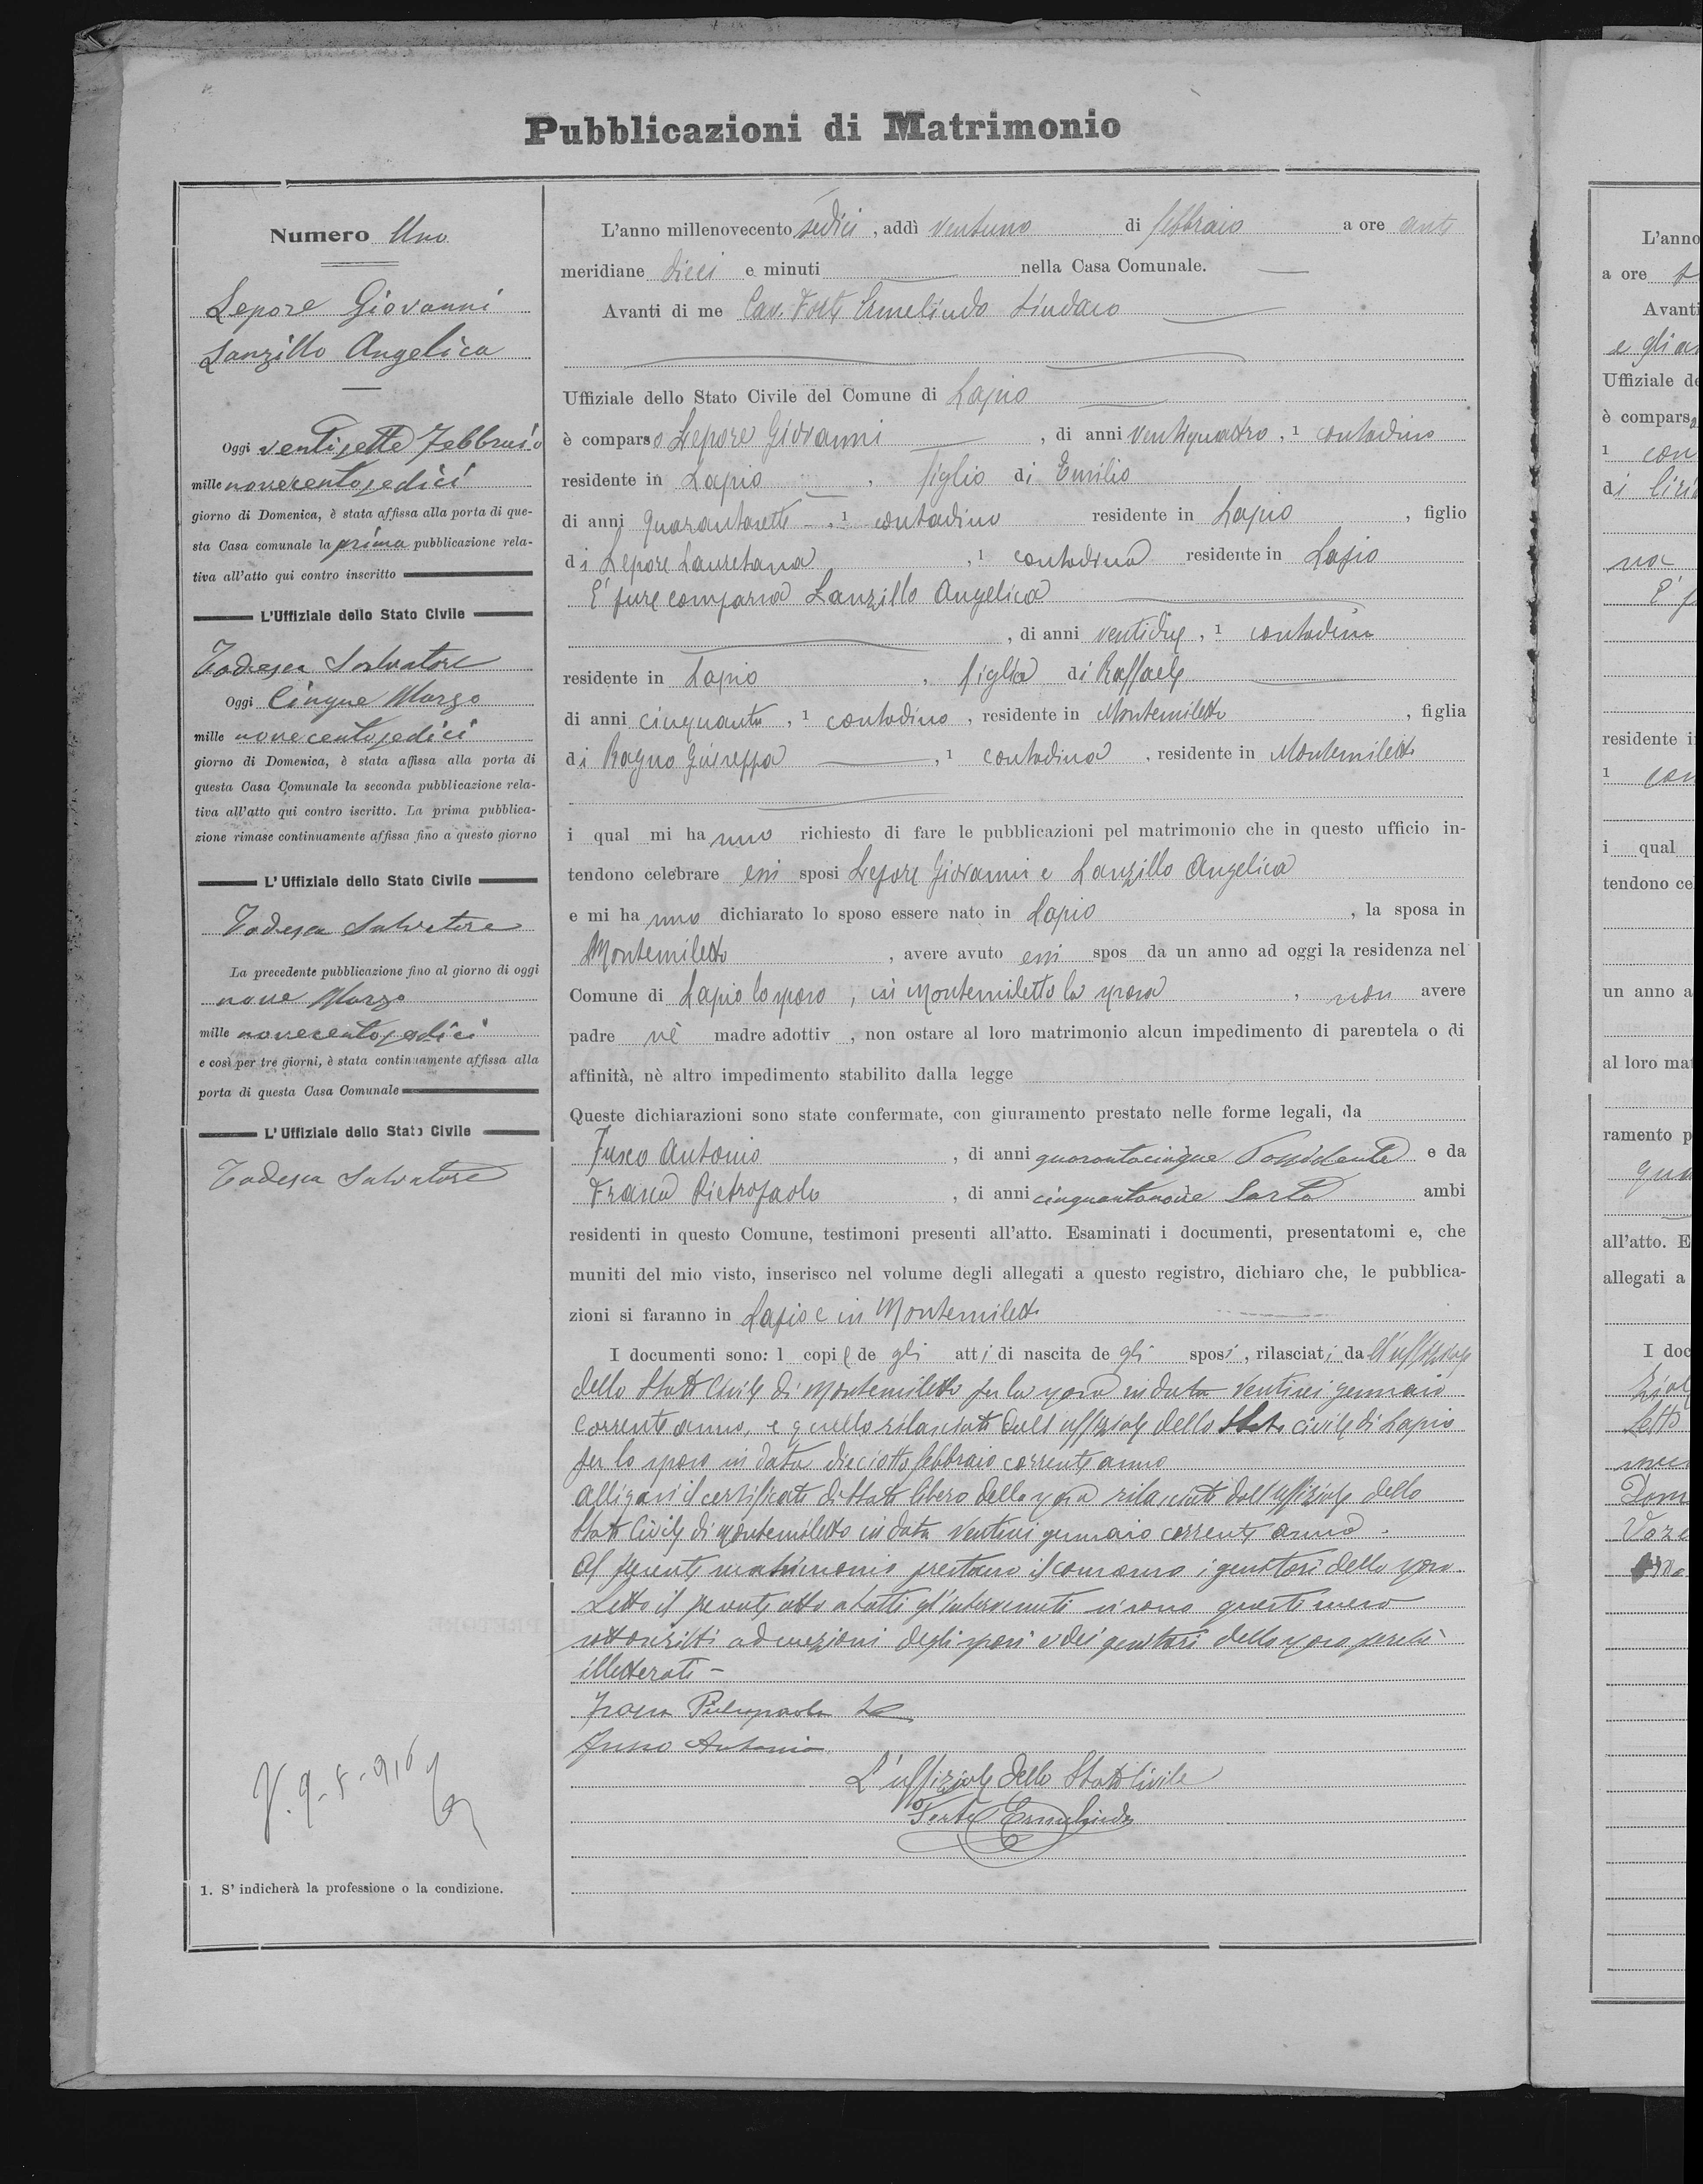 Pubblicazioni di Matrimonio
Numero Uno
Lepore Giovanni
Lanzillo Angelica
Oggi ventisette Febbraio
mille novecentosedici
giorno di Domenica, è stata affissa alla porta di que-
sta Casa comunale la prima pubblicazione rela-
tiva all'atto qui contro inscritto
L'Uffiziale dello Stato Civile
Todesca Salvatore
Oggi Cinque Marzo
mille novecentosedici
giorno di Domenica, è stata affissa alla porta di
questa Casa Comunale la seconda pubblicazione rela-
tiva all'atto qui contro iscritto. La prima pubblica-
zione rimase continuamente affissa fino a questo giorno
L'Uffiziale dello Stato Civile
Todesca Salvatore
La precedente pubblicazione fino al giorno di oggi
nove Marzo
mille novecentosedici
e così per tre giorni, è stata continuamente affissa alla
porta di questa Casa Comunale
L'Uffiziale dello Stato Civile
Todesca Salvatore
V. 9-5-916
1. S' indicherà la professione o la condizione.
L'anno millenovecento sedici, addì ventuno di febbraio a ore anti
meridiane dieci e minuti nella Casa Comunale.
Avanti di me Cav. Forte Ermelindo Sindaco
Uffiziale dello Stato Civile del Comune di Lapio
è comparso Lepore Giovanni, di anni ventiquattro, 1 contadino
residente in Lapio, figlio di Emilio
di anni quarantasette, 1 contadino residente in Lapio, figlio
di Lepore Lauretana, 1 contadina residente in Lapio
E' pure comparsa Lanzillo Angelica
, di anni ventidue, 1 contadina
residente in Lapio, figlia di Raffaele
di anni cinquanta, 1 contadino, residente in Montemiletto, figlia
di Ragno Giuseppa, 1 contadina, residente in Montemiletto
i qual mi hanno richiesto di fare le pubblicazioni pel matrimonio che in questo ufficio in-
tendono celebrare essi sposi Lepore Giovanni e Lanzillo Angelica
e mi hanno dichiarato lo sposo essere nato in Lapio, la sposa in
Montemiletto, avere avuto essi spos da un anno ad oggi la residenza nel
Comune di Lapio lo sposo, in Montemiletto la sposa, non avere
padre nè madre adottiv, non ostare al loro matrimonio alcun impedimento di parentela o di
affinità, nè altro impedimento stabilito dalla legge
Queste dichiarazioni sono state confermate, con giuramento prestato nelle forme legali, da
Fusco Antonio, di anni quarantacinque Possidente e da
Frasca Pietropaolo, di anni cinquantanove Sarto ambi
residenti in questo Comune, testimoni presenti all'atto. Esaminati i documenti, presentatomi e, che
muniti del mio visto, inserisco nel volume degli allegati a questo registro, dichiaro che, le pubblica-
zioni si faranno in Lapio e in Montemiletto
I documenti sono: l copie de gli atti di nascita de gli sposi, rilasciati dall'uffiziale
dello Stato Civile di Montemiletto per la sposa in data ventisei gennaio
corrente anno, e quello rilasciato dall'uffiziale dello Stato civile di Lapio
per lo sposo in data diciotto febbraio corrente anno
alligasi il certificato di stato libero della sposa rilasciato dall'uffiziale dello
Stato Civile di Montemiletto in data ventisei gennaio corrente anno.
Al presente matrimonio prestano il consenso i genitori dello sposo.
Letto il presente atto a tutti gl'intervenuti si sono questi meco
sottoscritti ad eccezioni degli sposi e dei genitori dello sposo perchè
illetterati -
Frasca Pietropaolo
Fusco Antonio
L'uffiziale dello Stato Civile
Forte Ermelindo
L'anno
a ore
Avanti
e gli a
Uffiziale de
è compars
1 con
di
na
residente i
1 con
i qual
tendono ce
un anno a
al loro mat
ramento p
all'atto. E
allegati a
I doc